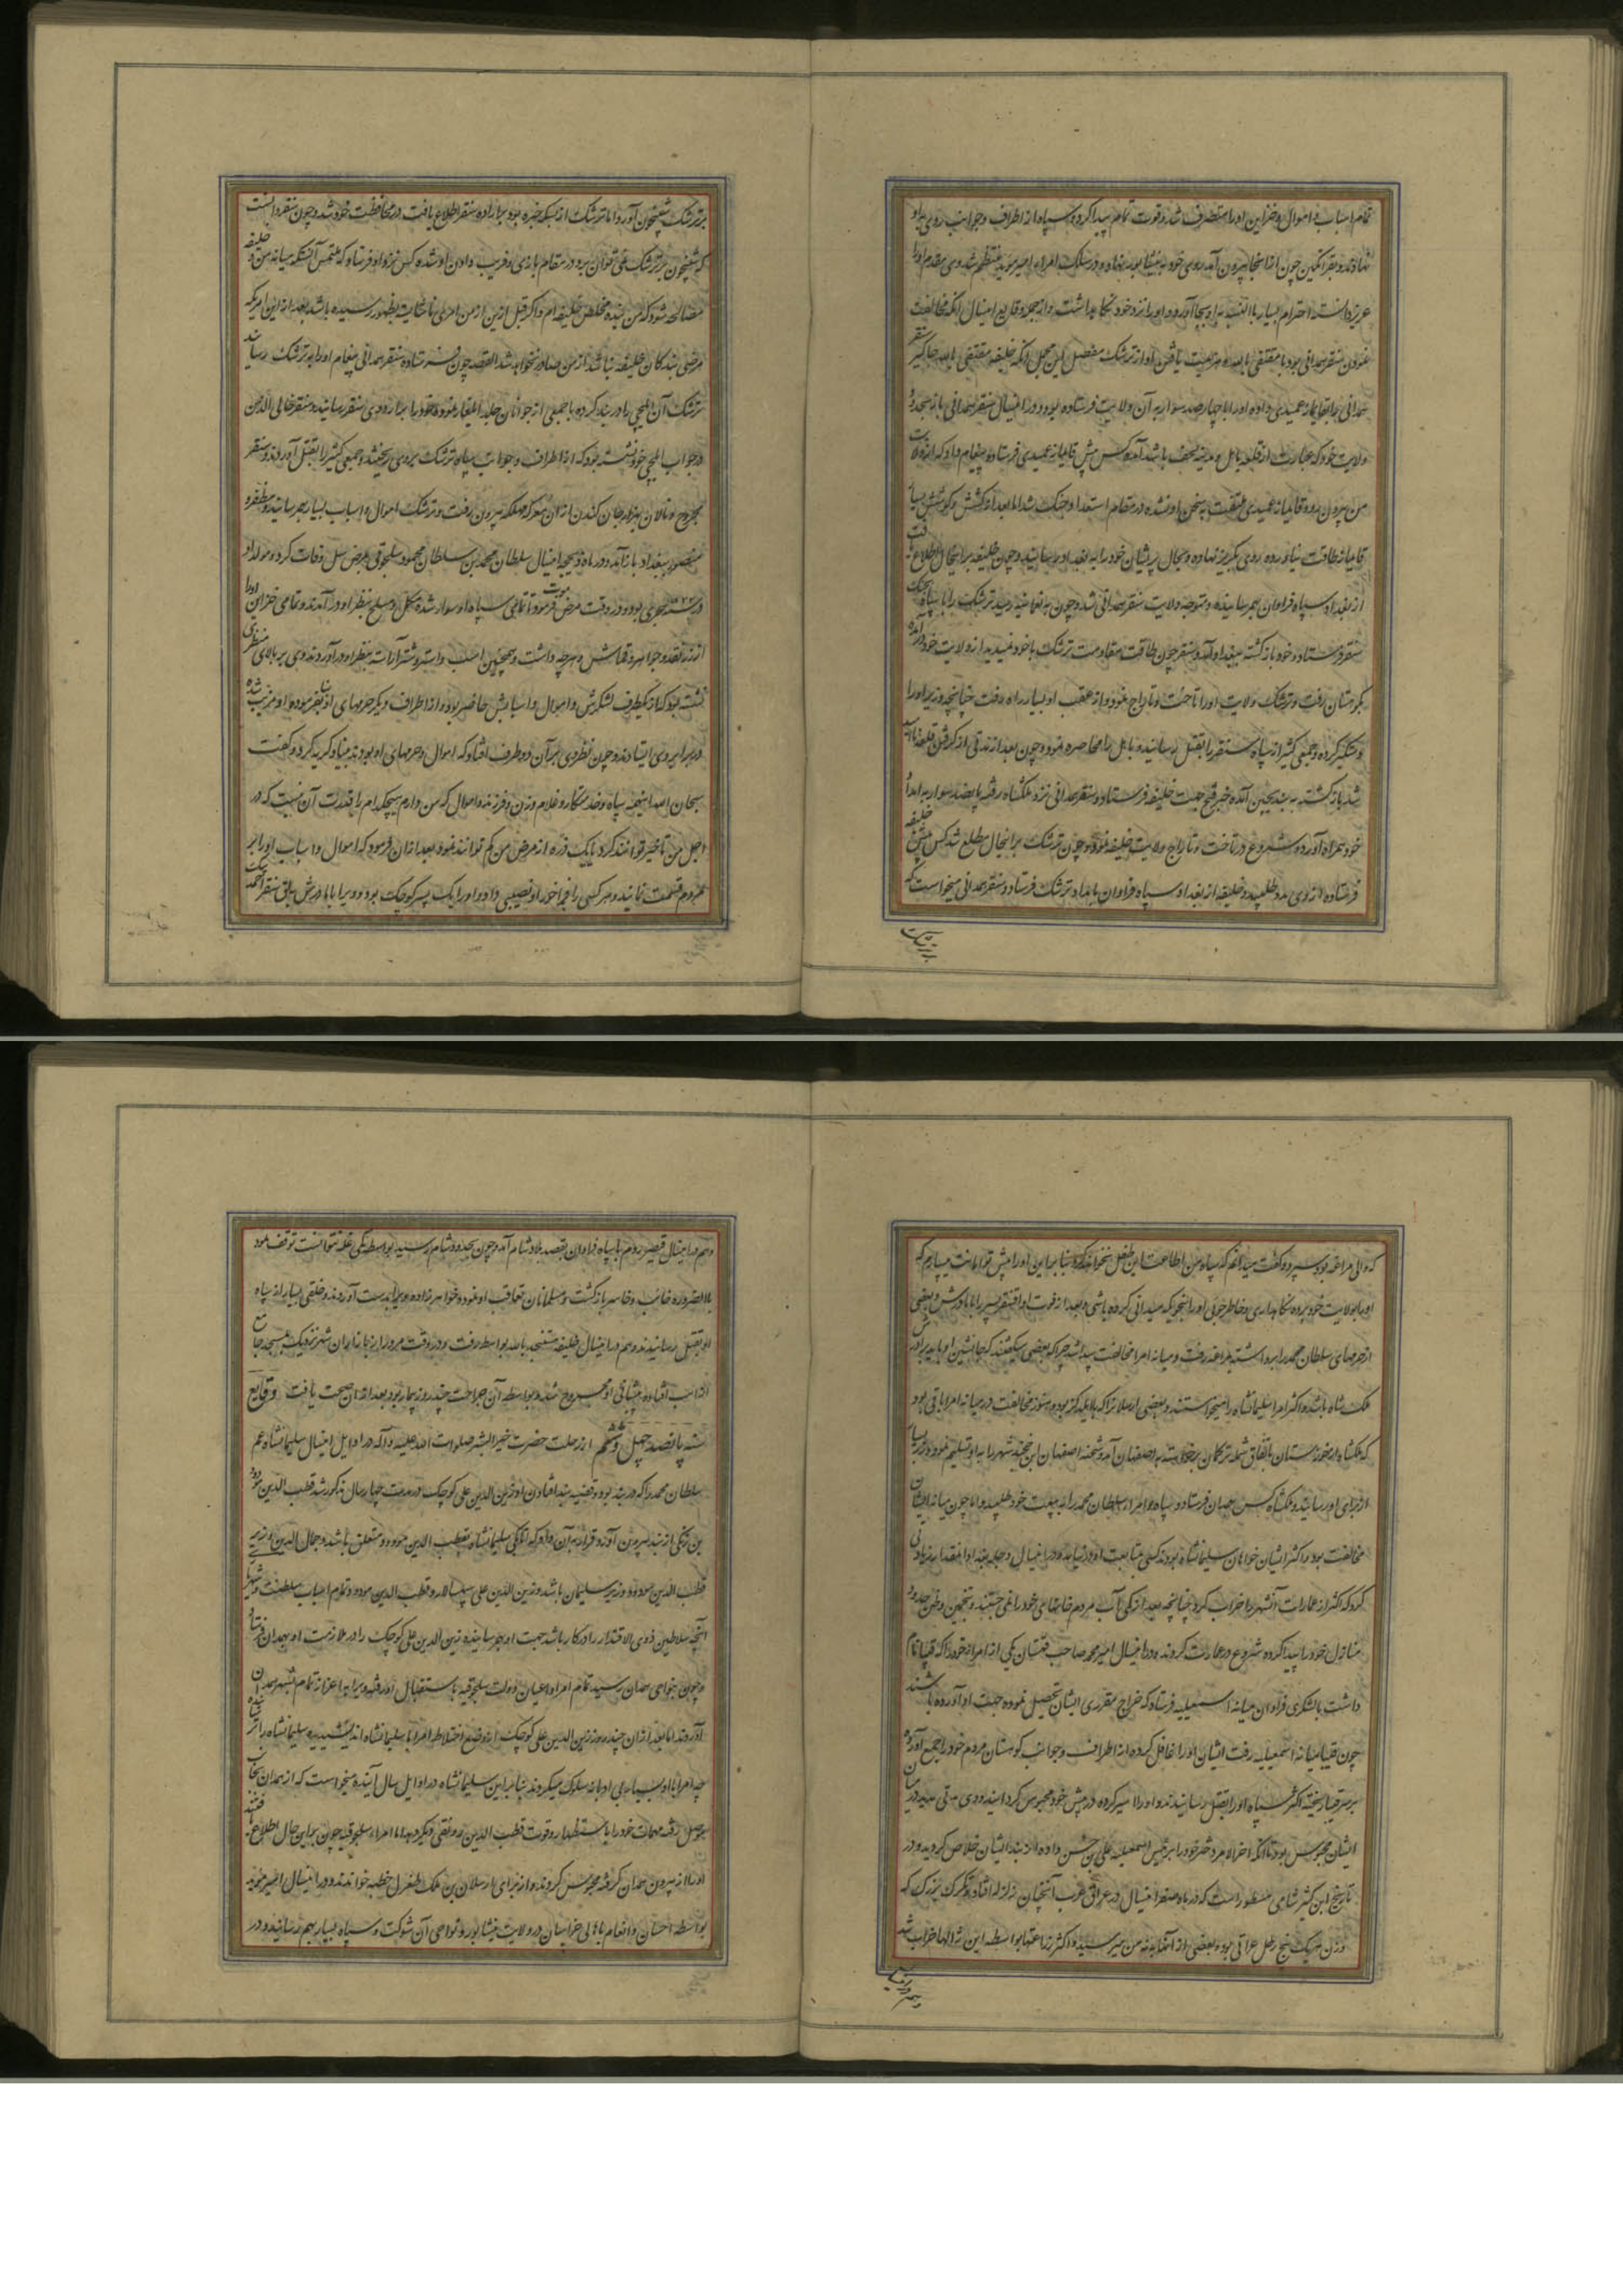 تمام اسباب و اموال و خزاین او را متصرف شد و قوت تمام پیدا کرد و سپاه از اطراف و جوانب روی باو
نهادند و بقرانکین چون از انجا بیرون آمد روی خود به نیشابور نهاد و در سلک امراء امیر موید منتظم شد وی مقدم او را
عزیز دانسته احترام بسیار بالنسبه باو بجا آورد و او را نزد خود نگاه داشت و از جمله وقایع امسال آنکه مخالفت
نمودن سنقر همدانی بود با مقتفی بالله و هزیمت یافتن او از ترشک مفصل این مجمل آنکه خلیفه مقتفی بالله جاگیر سنقر
همدانی را بقایماز عمیدی داده او را با چهارصد سوار به آن ولایت فرستاده بود و در امسال سنقر همدانی باز بحدود
ولایت خود که عبارت از قلعه باهل و مدینه نجف باشد آمده کس پیش قایماز عمیدی فرستاده پیغام داد که از ولایت
من بیرون رو و قایماز عمیدی ملتفت به سخن او نشده در مقام استعداد جنک شد اما بعد از کشش و کوشش بسیار
قایماز طاقت نیاورده روی بگریز نهاده و بحال پریشان خود را به بغداد رسانید و چون خلیفه بر این حال اطلاع یافت
از بغداد سپاه فراوان بهم رسانیده و متوجه ولایت سنقر همدانی شد و چون به نعمانیه رسید ترشک را با سپاه بجنک
سنقر فرستاد و خود بازگشته ببغداد آمد و سنقر چون طاقت مقاومت ترشک با خود ندید از ولایت خود برآمده
بکوهستان رفت و ترشک ولایت او را تاخت و تاراج نمود و از عقب او بسیار راه رفت چنانچه وزیر او را
دستگیر کرده و جمعی کثیر از سپاه سنقر را بقتل رسانید و باهل را محاصره نمود و چون بعد از مدتی از گرفتن قلعه ناامید
شد بازگشته به بندنیجین آمده خبر فتح جهت خلیفه فرستاد و سنقر همدانی نزد ملکشاه رفته پانصد سوار به امداد
خود همراه آورده شروع در تاخت و تاراج ولایت خلیفه نمود و چون ترشک بر این حال مطلع شد کس پیش خلیفه
فرستاده از وی مدد طلبید و خلیفه از بغداد سپاه فراوان بامداد ترشک فرستاد و سنقر همدانی میخواست که
بر ترشک
بر ترشک شبیخون آورد اما ترشک از بسکه خبره بود بر اراده سنقر اطلاع یافت در محافظت خود شد و چون سنقر دانست
که شبیخون بر ترشک نمی توان برد در مقام بازی و فریب دادن او شده کس نزد او فرستاد که ملتمس آنستکه میانه من و خلیفه
مصالحه شود که من بنده مخلص خلیفه ام و اگر قبل ازین از من امری ناشایست بظهور رسیده باشد بعد از این امری که
مرضی بندگان خلیفه نباشد از من صادر نخواهد شد القصه چون فرستاده سنقر همدانی پیغام او را به ترشک رسانید
ترشک آن ایلچی را در بند کرده با جمعی از جوانان جلد ایلغار نموده خود را بر اردوی سنقر رسانید و سنقر خالی الذهن
در جواب ایلچی خود نشسته بود که از اطراف و جوانب سپاه ترشک بر وی ریختند و جمعی کثیر را بقتل آوردند و سنقر
مجروح و نالان بهزار جان کندن از ان معرکه مهلکه بیرون رفت و ترشک اموال و اسباب بسیار بهم رسانید و مظفر و
منصور ببغداد باز آمد و در ماه ذیحجه امسال سلطان محمد بن سلطان محمود سلجوقی بمرض سل وفات کرد و مولد او
در سنه ۵۲۲ هجری بود و در وقت مرض موت فرمود تا تمامی سپاه او سوار شده مکمل و مسلح بنظر او در آمدند و تمامی خزاین او را
از زر نقد و جواهر و قماش و هرچه داشت و همچنین اسب و استر و شتر آراسته بنظر او در آوردند و وی بر بالای منظری
نشسته بود که از یکطرف لشکرش و اموال و اسبابش حاضر بود و از اطراف دیگر حرمهای او بنا بفرموده او مزین شده
در برابر وی ایستادند و چون نظر وی بر آن دو طرف افتاد که اموال و حرمهای او بودند بنیاد گریه کرد و گفت
سبحان الله اینهمه سپاه و خدمتکار و غلام و زن و فرزند و اموال که من دارم هیچکدام را قدرت آن نیست که در
اجل من تاخیر توانند کرد یا یک ذره از مرض من کم توانند نمود بعد از ان فرمود که اموال و اسباب او را بر
مردم قسمت نمایند و هر کسی را فراخور او نصیبی داد و او را یک پسر کوچک بود و ویرا با مادرش بسنقر احمدیلی
که والی مراغه بود سپرد و گفت میدانم که سپاه من اطاعت این طفل نخواهند کرد بنابراین او را پیش تو امانت میسپارم که
او را بولایت خود برده نگاهداری و خاطرجوئی او را بنحویکه میدانی کرده باشی و بعد از فوت او آقسنقر پسر را با مادرش و بعضی
از حرمهای سلطان محمد را برداشته بمراغه رفت و میانه امرا مخالفت پیدا شد چرا که بعضی میگفتند که جانشین او باید برادرش
ملک شاه باشد و اکثر امرا سلیمانشاه را میخواستند و بعضی ارسلان را که با یلدکز بود و هنوز مخالفت در میانه امرا باقی بود
که ملکشاه از خوزستان باتفاق شمله ترکمان برخواسته به اصفهان آمد و شحنه اصفهان ابن خجند شهر را به او تسلیم نمود و زر بسیار
از برای او رسانید و ملکشاه کس بهمدان فرستاد و سپاه و امراء سلطان محمد را به بیعت خود طلبید و اما چون میانه ایشان
مخالفت بود و اکثر ایشان خواهان سلیمانشاه بودند کسی بمتابعت او در نیامد و در امسال دجله بغداد انقدر زیادتی
کرد که اکثر از عمارات آنشهر را خراب کرد چنانچه بعد از کمی آب مردم خانهای خود را نمی جستند و بتخمین و ظن حدود
منازل خود را پیدا کرده شروع در عمارت کردند و در امسال امیر محمد صاحب قهستان یکی از امراء خود را که قیبا نام
داشت با لشکری فراوان میانه اسمعیلیه فرستاد که خراج مقرری ایشان تحصیل نموده جهت او آورده باشند
چون قیبا میانه اسمعیلیه رفت ایشان او را غافل کرده از اطراف و جوانب کوهستان مردم خود را جمع آورده
بر سر قیبا ریخته اکثر سپاه او را بقتل رسانیدند و او را اسیر کرده در پیش خود محبوس گردانیدند و وی مدتی مدید در میان
ایشان محبوس بود تا آنکه اخر الامر دختر خود را برئیس اسمعیلیه علی بن حسن داده از بند ایشان خلاص گردید و در
تاریخ ابن کثیر شامی مسطور است که در ماه صفر امسال در عراق عرب آنچنان ژاله افتاد و تگرگ بزرگ که
وزن هریک پنج رطل عراقی بود و بعضی از آنها به نه من میرسید و اکثر زراعتها بواسطه این ژالها خراب شد
و هم در امسال
و هم در امسال قیصر روم با سپاه فراوان بقصد بلاد شام آمد و چون بحدود شام رسید بواسطه تنکی غله نتوانست توقف نمود
بالضروره خائب و خاسر بازگشت و مسلمانان تعاقب او نموده خواهرزاده ویرا بدست آوردند و خلقی بسیار از سپاه
او بقتل رسانیدند و هم در امسال خلیفه مستنجد بالله بواسط رفت و در وقت مرور از بازار ان شهر نزدیک بمسجد جامع
از اسب افتاده پیشانی او مجروح شد و بواسطه آن جراحت چند روز بیمار بود بعد از ان صحت یافت وقایع
سنه پانصد چهل و ششم از رحلت حضرت خیر البشر صلوات الله علیه و آله در اوایل امسال سلیمانشاه عم
سلطان محمد را که در بند بود و قضیه بند افتادن او بزین الدین علی کوچک در مدت چهار سال مذکور شد قطب الدین مودود
بن زنکی از بند بیرون آورد و قرار به آن داد که اتابکی سلیمانشاه بقطب الدین مودود متعلق باشد و جمال الدین وزیر
قطب الدین مودود وزیر سلیمان باشد و زین الدین علی سپهسالار و قطب الدین مودود تمام اسباب سلطنت و شهریاری
آنچه سلاطین ذوی الاقتدار را در کار باشد جهت او بهم رسانیده زین الدین علی کوچک را در ملازمت او بهمدان فرستاد
و چون بنواحی همدان رسید تمام امراء و اعیان دولت سلجوقیه باستقبال او رفته ویرا به اعزاز تمام بشهر همدان
آوردند اما بعد از ان چند روز زین الدین علی کوچک از وضع اختلاط امرا با سلیمانشاه اندیشیده سلیمانشاه را تنها گذاشت
چه امرا با او بسیار بی ادبانه سلوک میکردند بنابراین سلیمانشاه در اوایل سال آینده میخواست که از همدان بجانب
موصل رفته مهمات خود را باستظهار و قوت قطب الدین رونقی دیگر دهد اما امراء سلجوقیه چون بر این حال اطلاع یافتند
او را از بیرون همدان گرفته محبوس کردند و از برای ارسلان بن ملک طغرل خطبه خواندند و در امسال امیر موید
بواسطه احسان و انعام با اهالی خراسان در ولایت نیشابور و نواحی آن شوکت و سپاه بسیار بهم رسانید و در